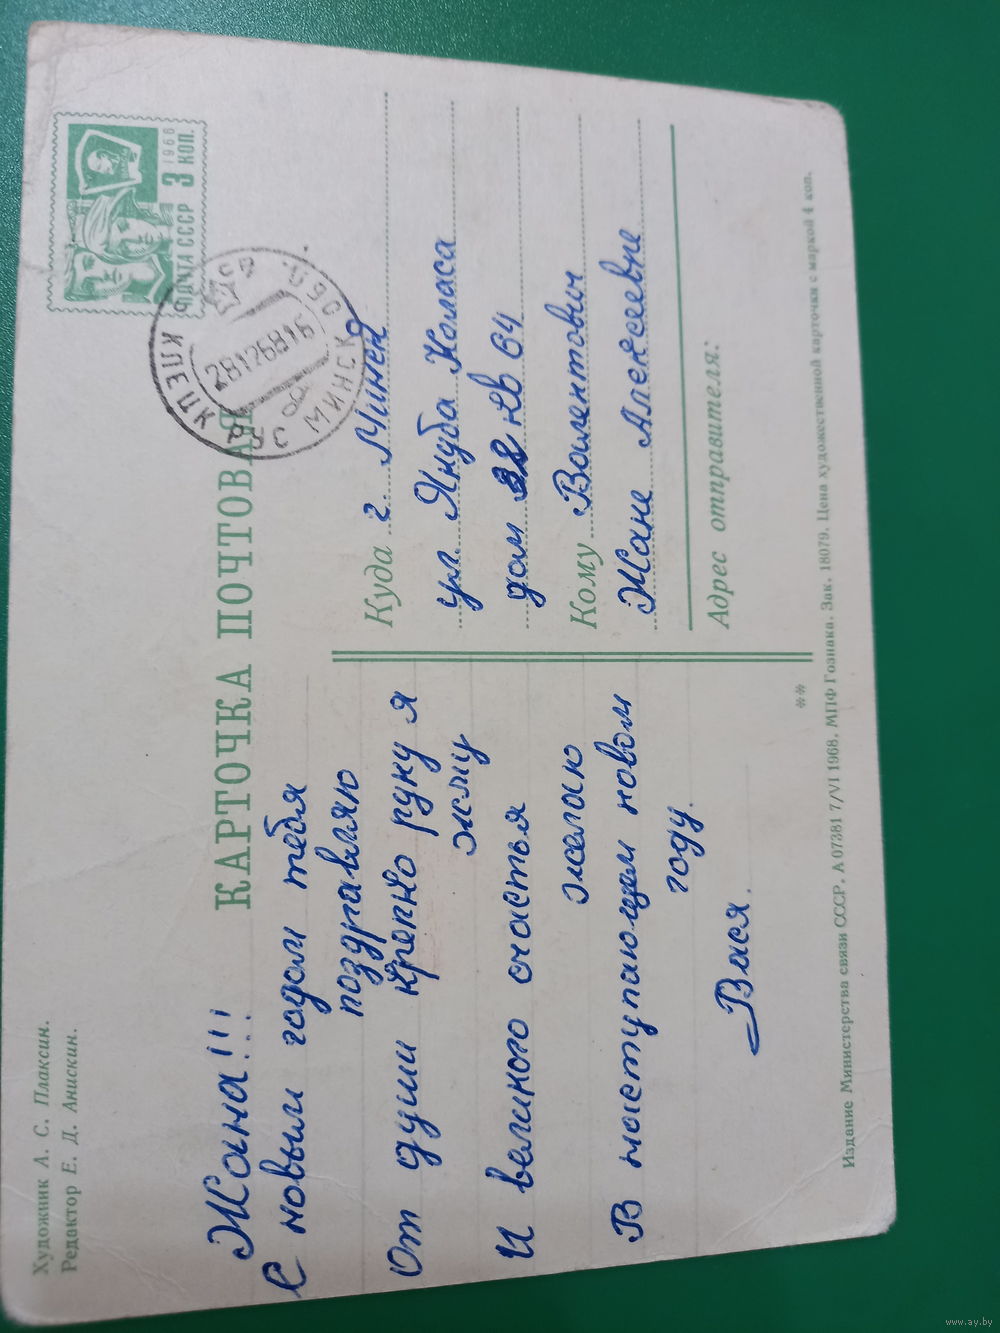 Художник А. С. Плаксин.
Редактор Е. Д. Анискин.
ПОЧТА СССР 3 КОП.
1966
КАРТОЧКА ПОЧТОВАЯ
МИНСК
281268 16
Жанна!!!
С новым годом тебя
поздравляю
От души крепко руку я
жму
И великого счастья
желаю
В наступающем новом
году.
Вася.
Куда г. Минск
ул. Якуба Коласа
дом кв 64
Кому Валентович
Жане Алексеевне
Адрес отправителя:
**
Издание Министерства связи СССР. А 07381 7/VI 1968. МПФ Гознака. Зак. 18079. Цена художественной карточки с маркой 4 коп.
www.ay.by